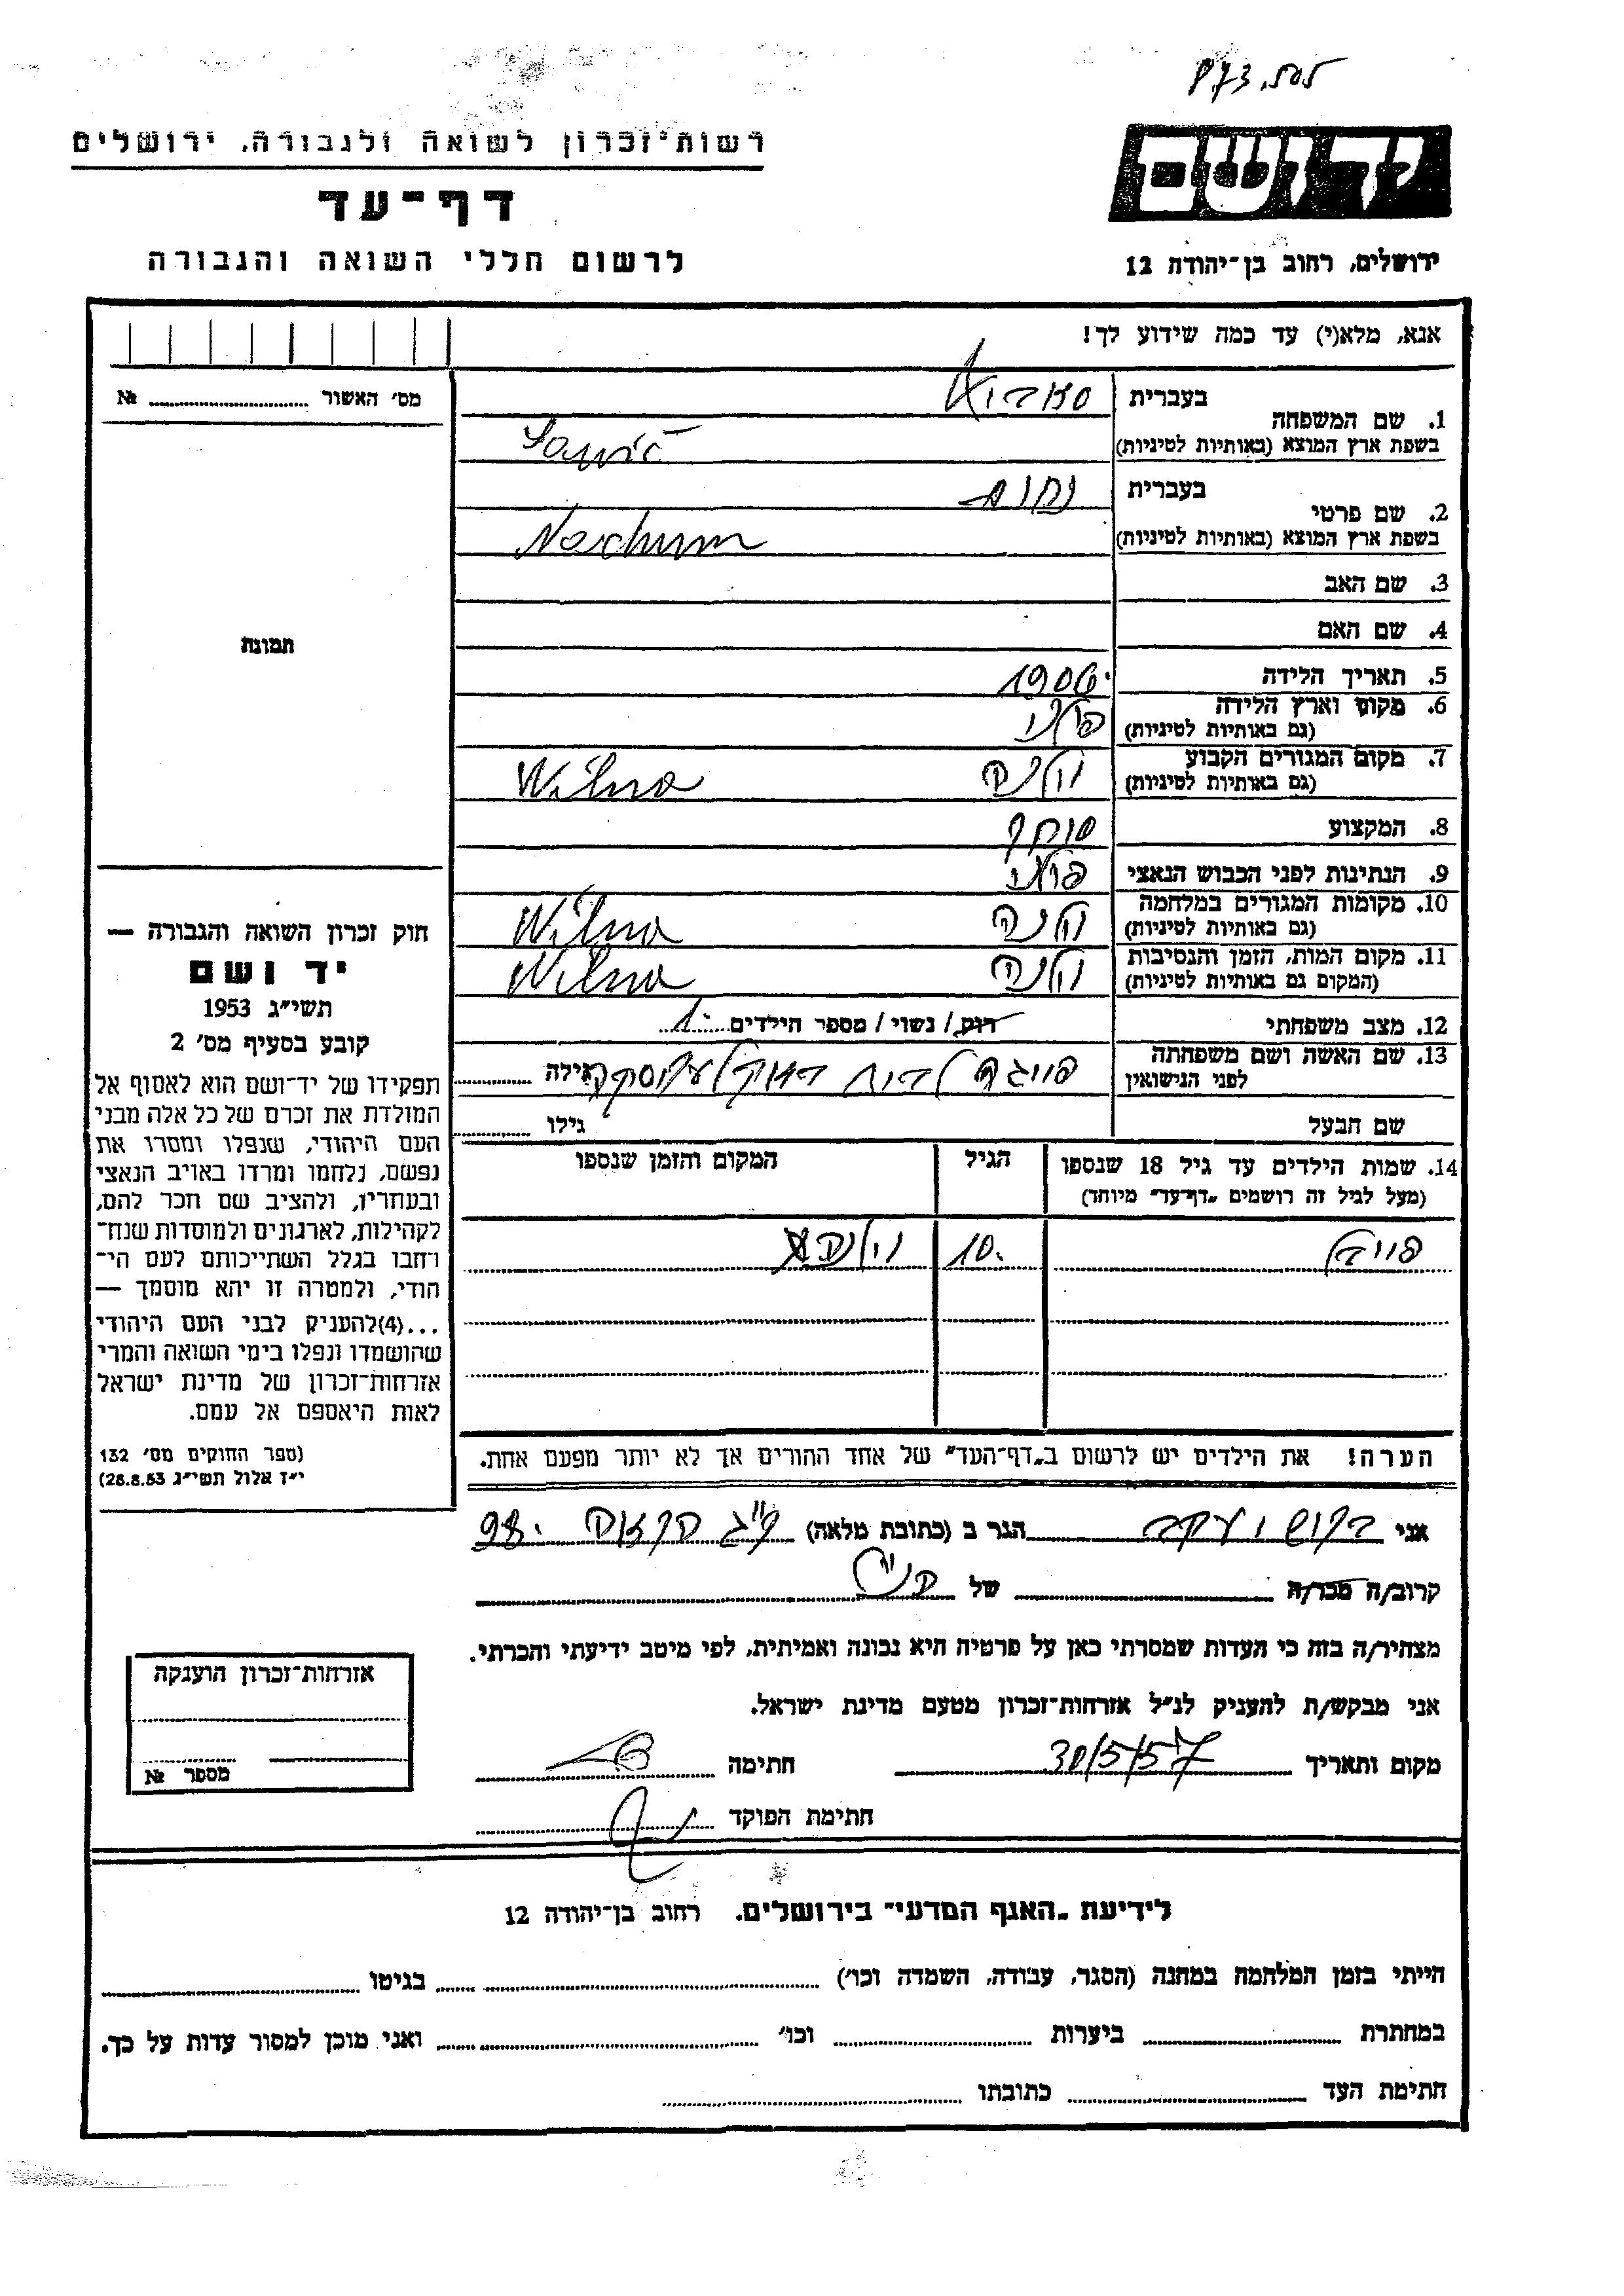 רשות־זכרון לשואה ולגבורה, ירושלים
דף־עד
לרשום חללי השואה והגבורה
יד ושם
ירושלים, רחוב בן־יהודה 12
אנא, מלא(י) עד כמה שידוע לך!
מס' האשור № ........
תמונה
1. שם המשפחה
בעברית
בשפת ארץ המוצא (באותיות לטיניות)
2. שם פרטי
בעברית נחום
בשפת ארץ המוצא (באותיות לטיניות) Nachum
3. שם האב
4. שם האם
5. תאריך הלידה 1906
6. מקום וארץ הלידה
(גם באותיות לטיניות) פולני
7. מקום המגורים הקבוע
(גם באותיות לטיניות) וילנה Wilna
8. המקצוע סוחר
9. הנתינות לפני הכבוש הנאצי פולני
10. מקומות המגורים במלחמה
(גם באותיות לטיניות) וילנה Wilna
11. מקום המות, הזמן והנסיבות
(המקום גם באותיות לטיניות) וילנה Wilna
12. מצב משפחתי רוק / נשוי / מספר הילדים 1
13. שם האשה ושם משפחתה
לפני הנישואין גילה
שם הבעל גילו
14. שמות הילדים עד גיל 18 שנספו
(מעל לגיל זה רושמים "דף־עד" מיוחד)
הגיל
המקום והזמן שנספו
10 וילנה
הערה! את הילדים יש לרשום ב"דף־העד" של אחד ההורים אך לא יותר מפעם אחת.
חוק זכרון השואה והגבורה —
יד ושם
תשי"ג 1953
קובע בסעיף מס' 2
תפקידו של יד־ושם הוא לאסוף אל
המולדת את זכרם של כל אלה מבני
העם היהודי, שנפלו ומסרו את
נפשם, נלחמו ומרדו באויב הנאצי
ובעוזריו, ולהציב שם וזכר להם,
לקהילות, לארגונים ולמוסדות שנח־
רבו בגלל השתייכותם לעם הי־
הודי, ולמטרה זו יהא מוסמך —
...(4) להעניק לבני העם היהודי
שהושמדו ונפלו בימי השואה והמרי
אזרחות־זכרון של מדינת ישראל
לאות היאספם אל עמם.
(ספר החוקים מס' 132
י"ז אלול תשי"ג 28.8.53)
אני יעקב הגר ב (כתובת מלאה) 98
קרוב/ה מכר/ה של הנ"ל
מצהיר/ה בזה כי העדות שמסרתי כאן על פרטיה היא נכונה ואמיתית, לפי מיטב ידיעתי והכרתי.
אני מבקש/ת להעניק לנ"ל אזרחות־זכרון מטעם מדינת ישראל.
מקום ותאריך 30/5/57 חתימה
חתימת הפוקד
אזרחות־זכרון הוענקה
מספר №
לידיעת "האגף המדעי" בירושלים. רחוב בן־יהודה 12
הייתי בזמן המלחמה במחנה (הסגר, עבודה, השמדה וכו') בגיטו
במחתרת ביערות וכו' ואני מוכן למסור עדות על כך.
חתימת העד כתובתו